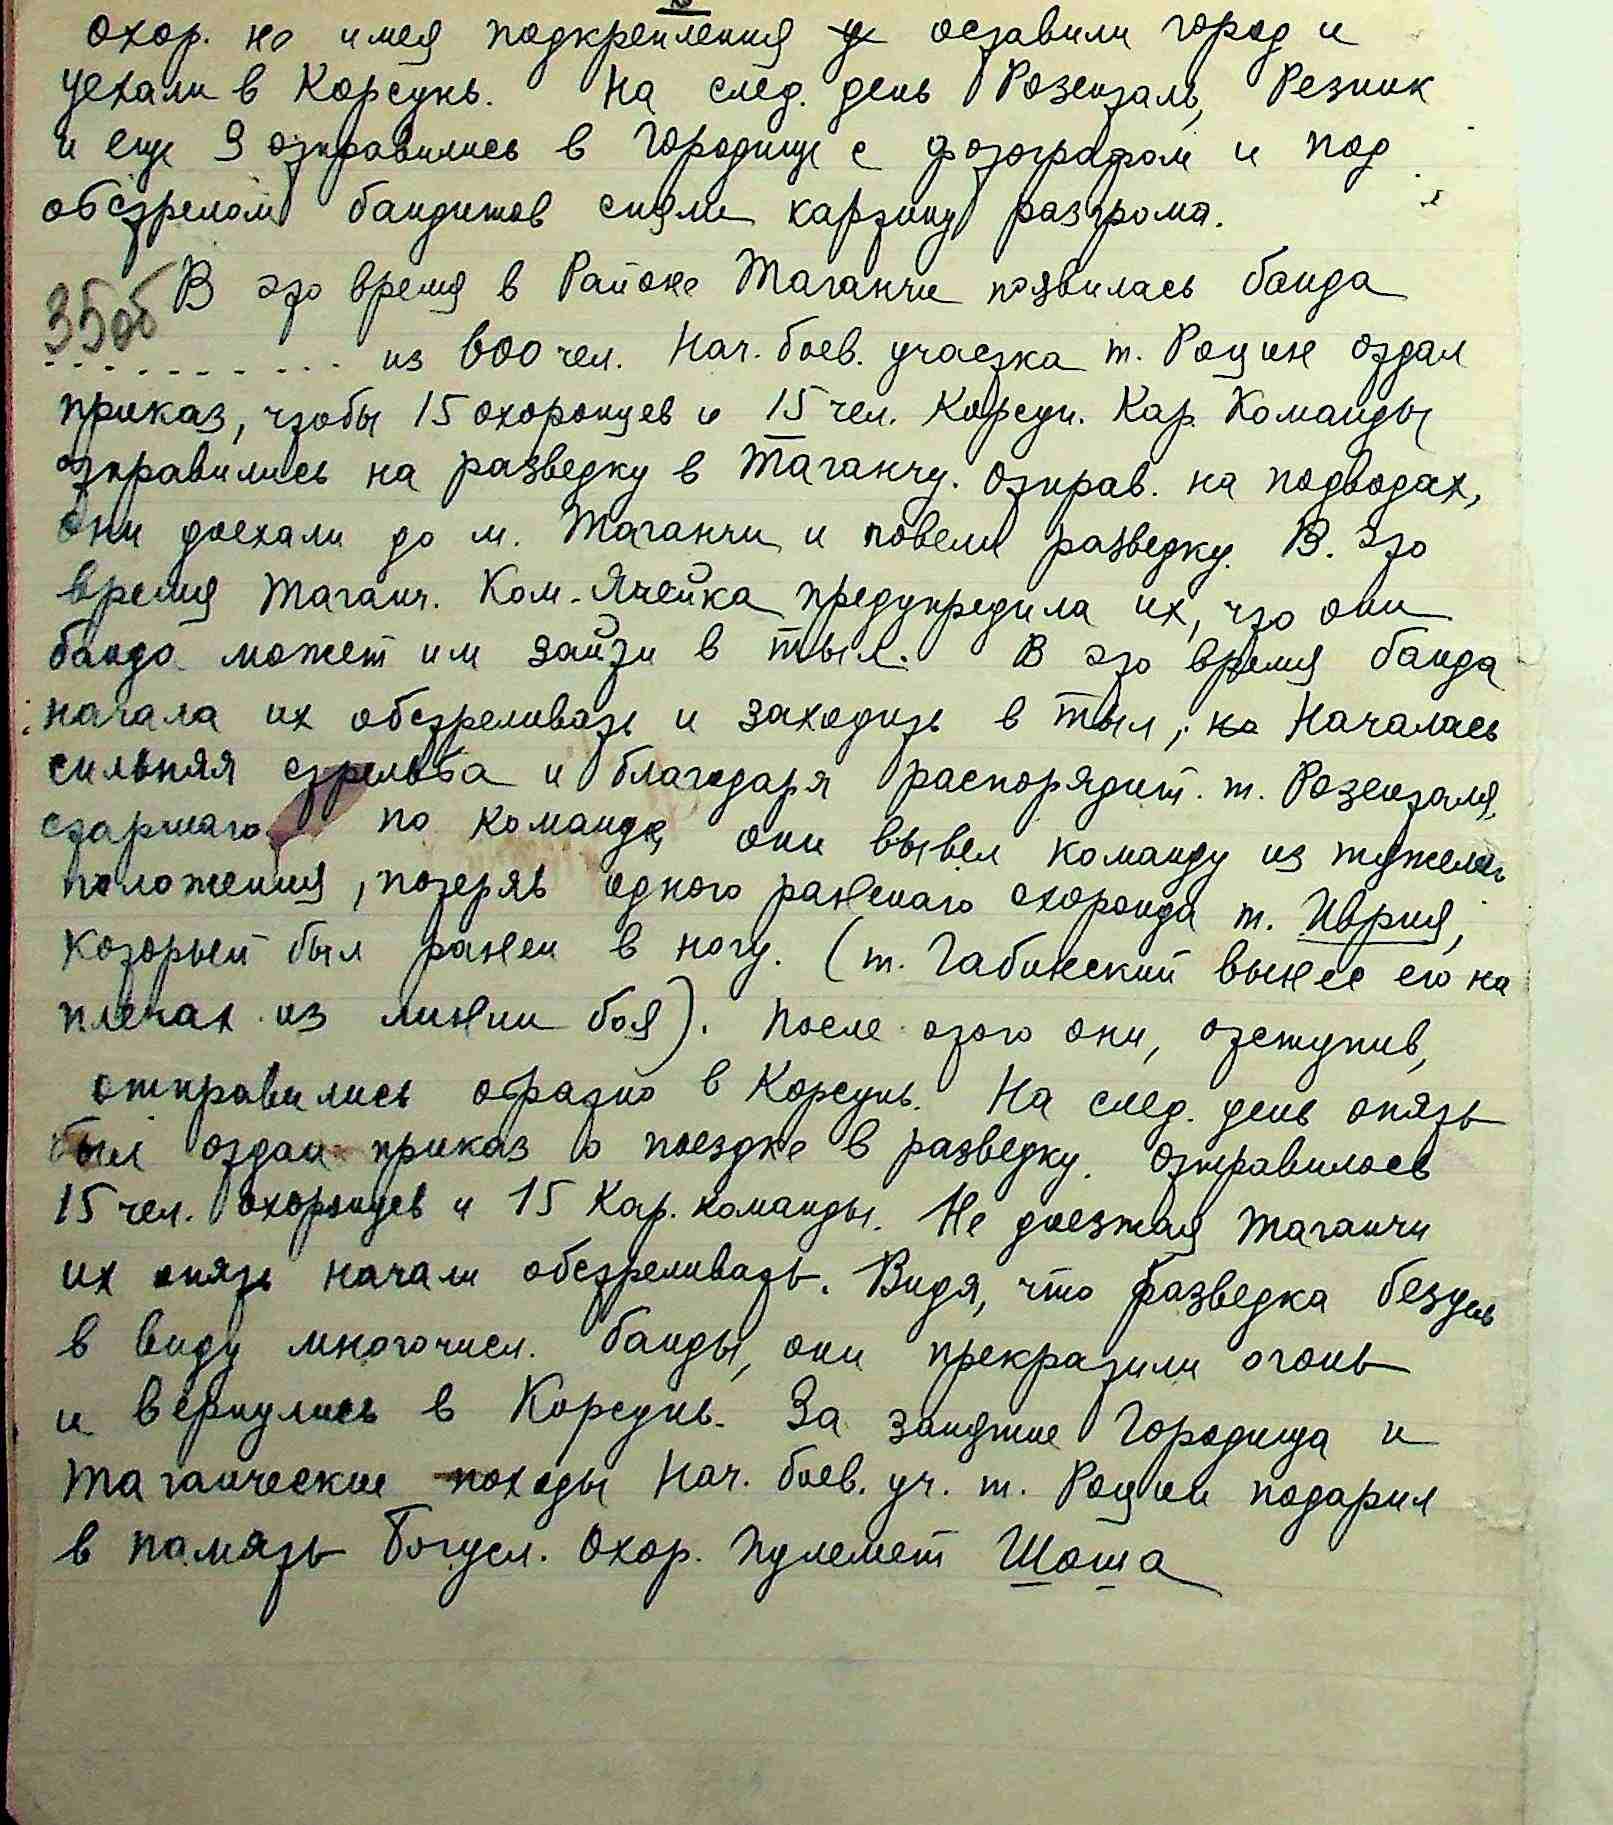 охор. не имея подкрепления оставили город и
уехали в Корсунь. На след. день Розенталь, Резник
и еще 3 отправились в Городище с фотографом и под
обстрелом бандитов сняли картину разгрома.
35об В это время в Районе Таганчи появилась банда
. . . . . . . . . . . из 600 чел. Нач. боев. участка т. Рощин отдал
приказ, чтобы 15 охоронцев и 15 чел. Корсун. Кар. Команды
отправились на разведку в Таганчу. Отправ. на подводах,
они доехали до м. Таганчи и повели разведку. В. это
время Таганч. Ком-Ячейка предупредила их, что они
банда может им зайти в тыл. В это время банда
начала их обстреливать и заходить в тыл, но Началась
сильная стрельба и благодаря распорядит. т. Розенталя,
старшаго по команде, они вывел команду из тяжелаго
положения, потеряв одного раненаго охоронца т. Иврия,
который был ранен в ногу. (т. Габинский вынес его на
плечах из линии боя). После этого они, отступив,
отправились обратно в Корсунь. На след. день опять
был отдан приказ о поездке в разведку. Отправилось
15 чел. охоронцев и 15 Кар. команды. Не доезжая Таганчи
их опять начали обстреливать. Видя, что разведка
в виду многочисл. банды, они прекратили огонь
и вернулись в Корсунь. За занятие Городища и
Таганческие походы Нач. боев. уч. т. Рощин подарил
в память Богусл. Охор. пулемет Шоша